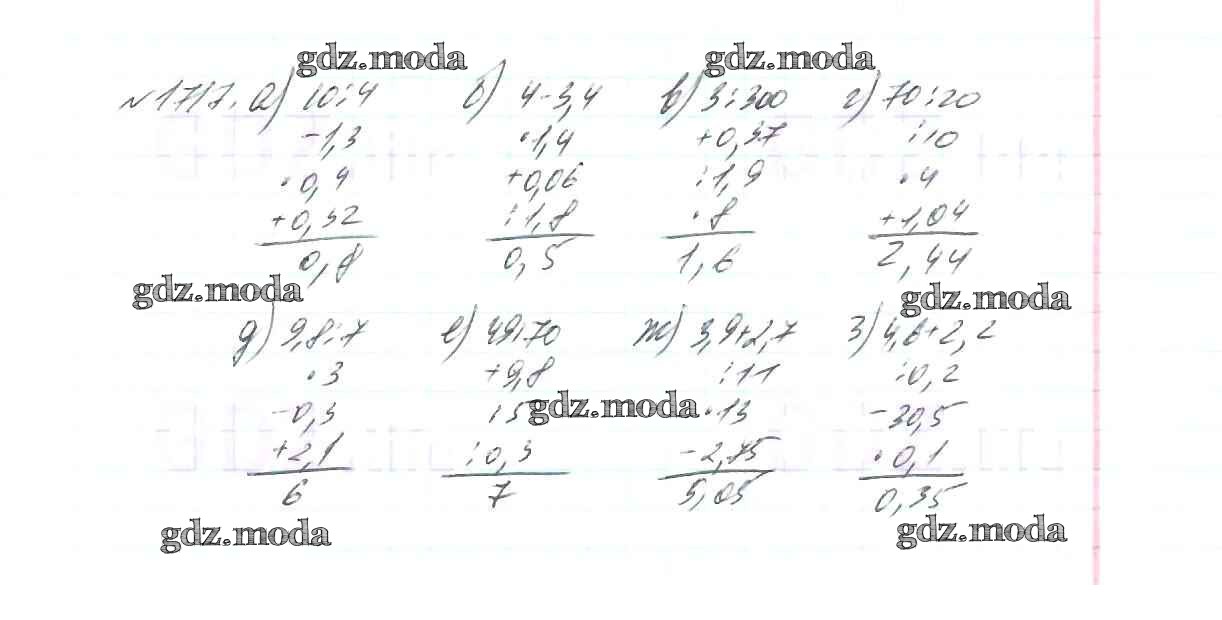 gdz.moda gdz.moda
№1717. а) 10:4 б) 4-3,4 в) 3:300 г) 70:20
-1,3 ·1,4 +0,37 :10
·0,4 +0,06 :1,9 ·4
+0,32 :1,8 ·8 +1,04
0,8 0,5 1,6 2,44
gdz.moda gdz.moda
д) 9,8:7 е) 49:70 ж) 3,9+2,7 з) 4,6+2,2
·3 +9,8 :11 :0,2
-0,3 :5 gdz.moda ·13 -30,5
+2,1 :0,3 -2,75 ·0,1
6 7 5,05 0,35
gdz.moda gdz.moda